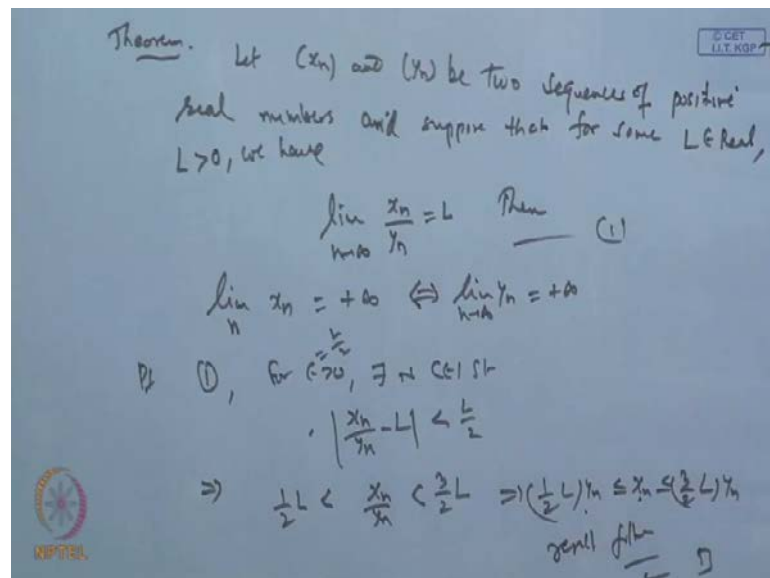 © CET
I.I.T. KGP
Theorem. Let (xn) and (yn) be two sequences of positive
real numbers and suppose that for some L ∈ Real,
L > 0, we have
lim n→∞ xn/yn = L Then — (1)
lim n xn = +∞ ⇔ lim n→∞ yn = +∞
Pf ①, For ε > 0, ∃ N st
= L/2
| xn/yn - L | < L/2
⇒ 1/2 L < xn/yn < 3/2 L ⇒ (1/2 L) yn ≤ xn ≤ (3/2 L) yn
result follow
NPTEL